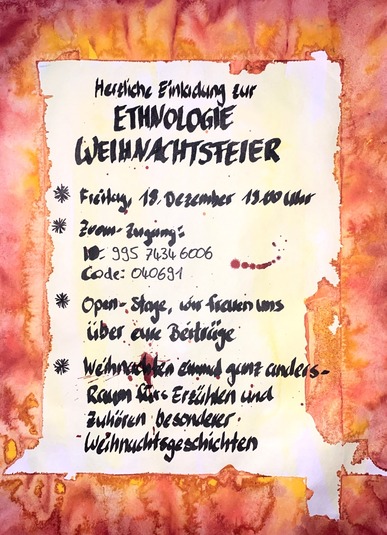 Herzliche Einladung zur
ETHNOLOGIE
WEIHNACHTSFEIER
* Freitag, 18. Dezember 19.00 Uhr
* Zoom-Zugang:
ID: 995 7434 6006
Code: 040691
* Open-Stage, wir freuen uns
über eure Beiträge
* Weihnachten einmal ganz anders-
Raum fürs Erzählen und
Zuhören besonderer
Weihnachtsgeschichten